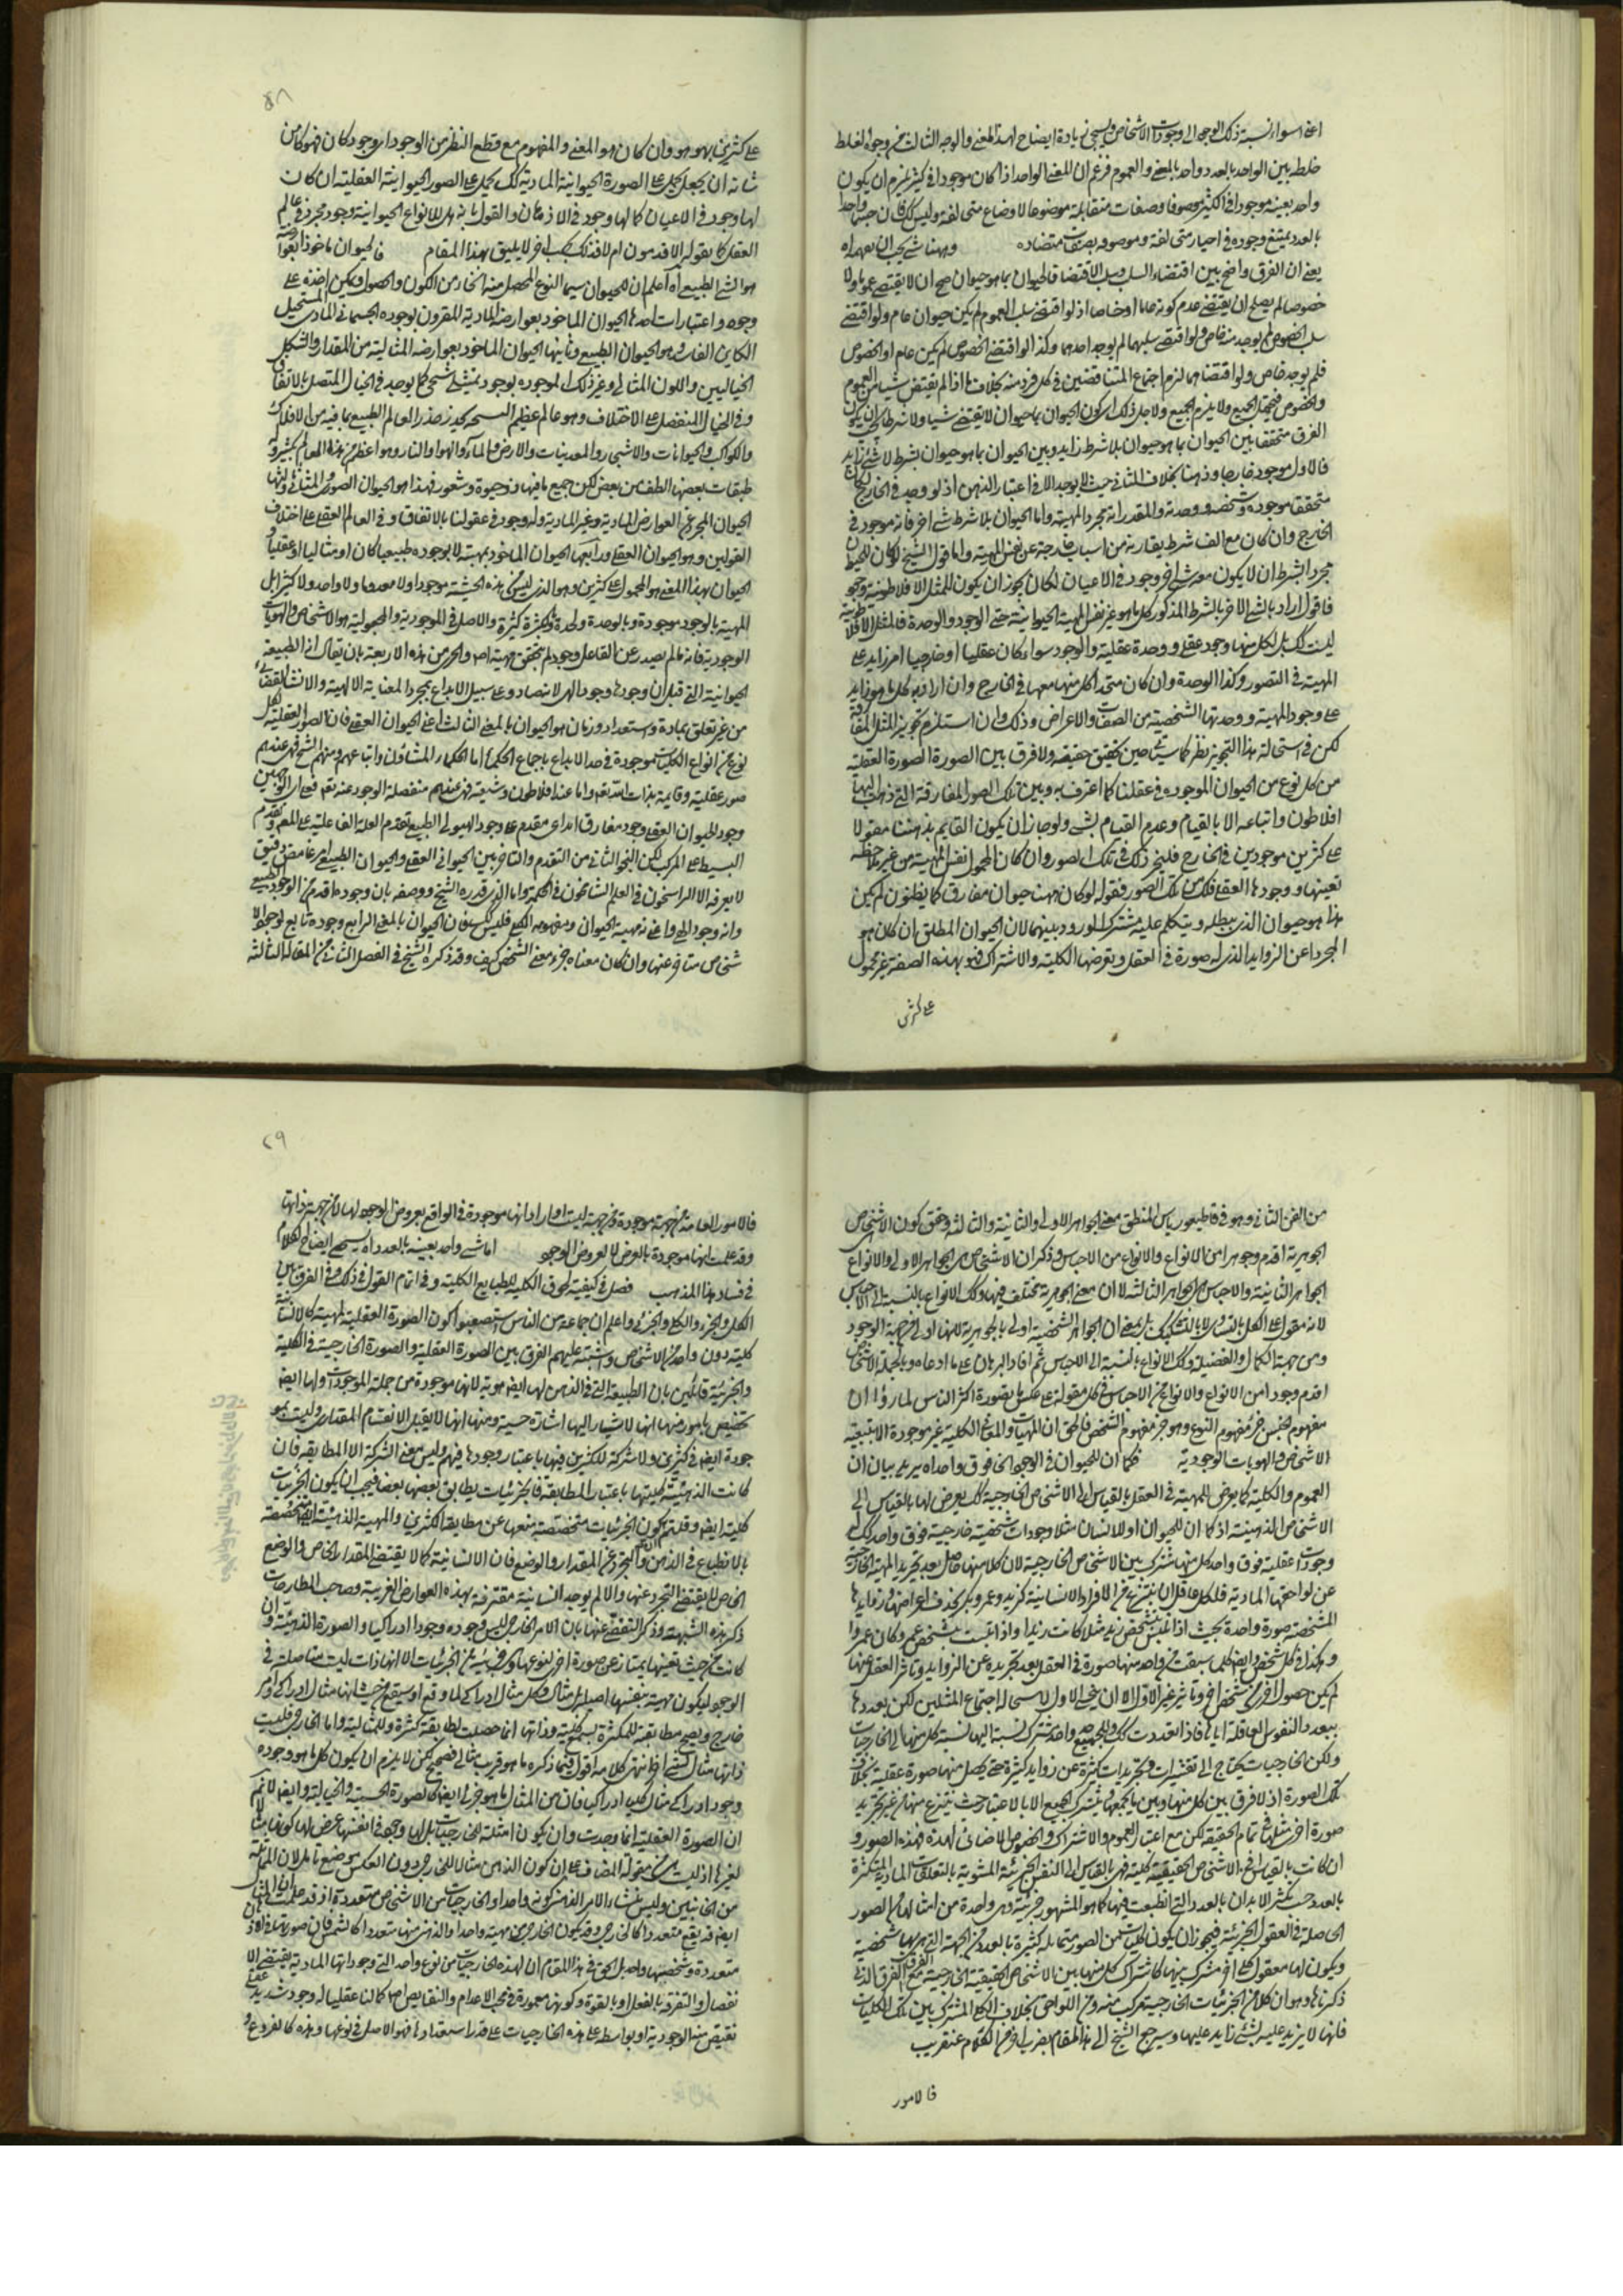 اعنى سواء نسبة ذلك الوجه الى وجودات الاشخاص وسيجئ زيادة ايضاح لهذا المعنى والوجه الثالث من وجوه الغلط
خلط بين الواحد بالعدد وواحد بالمعنى والعموم فزعم ان المعنى الواحد اذا كان موجودا فى كثير يلزم ان يكون
واحد بعينه موجودا فى الكثير موصوفا وصفات متقابلة موضوعا لاوضاع متخالفة وليس كك فان جسما واحدا
بالعدد يمتنع وجوده فى احياز متخالفة وموصوفه بصفات متضاده وههنا شئ يجب ان يفهم اه
يعنى ان الفرق واضح بين اقتضاء السلب وسلب الاقتضا فالحيوان بما هو حيوان صح ان لا يقتضى عموما ولا
خصوصا لم يصلح ان يقتضى عدم كونه عاما او خاصا اذ لو اقتضى سلب العموم لم يكن حيوان عام ولو اقتضى
سلب الخصوص لم يوجد منه خاص ولو اقتضى سلبهما لم يوجد احدهما وكذا لو اقتضى الخصوص لم يكن عام او الخصوص
فلم يوجد خاص ولو اقتضاهما لزم اجتماع المتناقضين فى كل فرد منه بخلاف ما اذا لم يقتض شيئا من العموم
والخصوص فيحمل الجميع ولا يلزم الجميع ولاجل ذلك اى كون الحيوان بما حيوان لا يقتضى شيا ولا شرطا يجب ان يكون
الفرق متحققا بين الحيوان بما هو حيوان بلا شرط زايد وبين الحيوان بما هو حيوان بشرط لا شئ زايد
فالاول موجود خارجا وذهنا بخلاف الثانى حيث لا يوجد الا فى اعتبار الذهن اذ لو وجد فى الخارج لكان
متحققا موجوده وتشخصه ووحدته والمقدر انه مجرد المهية واما الحيوان بلا شرط شئ اخر فانه موجود فى
الخارج وان كان مع الف شرط يقارنه من اسباب خارجة عن نفس المهية واما قول الشيخ لو كان للحيوان
مجردا بشرط ان لا يكون معه شئ اخر وجود فى الاعيان لكان يجوز ان يكون للمثل الافلاطونية وجود
فاقول اراد بالشئ الاخر بالشرط المذكور كل ما هو غير نفس المهية الحيوانية حتى الوجود والوحدة فالمثل الافلاطونية
ليست كك بل لكل منها وجود عقلى ووحدة عقلية والوجود سواء كان عقليا او خارجيا امر زايد على
المهية فى التصور وكذا الوحدة وان كان متحدا كل منها معها فى الخارج وان اراد به كل ما هو زايد
على وجود المهية ووحدتها الشخصية من الصفات والاعراض وذلك وان استلزم تجويز المثل المفارقة
لكن فى استحالة هذا التجويز نظر كما سيتاتى حين تحقيق حقيقته ولا فرق بين الصورة الصورة العقلية
من كل نوع من الحيوان الموجوده فى عقلنا كما اعترف به وبين تلك الصور المفارقة التى ذهب اليها
افلاطون واتباعه الا بالقيام وعدم القيام بشئ ولو جاز ان يكون القايم بذهننا مقولا
على كثرين موجودين فى الخارج فليجز ذلك فى تلك الصور وان كان المحمول نفس المهية من غير ملاحظة
تعينها ووجودها العقلى فكك من تلك الصور فقوله لو كان ههنا حيوان مفارق كما يظنون لم يكن
هذا هو حيوان الذى يطلبه ويتكلم عليه مشترك الورود بينهما لان الحيوان المطلق ان كان هو
المجرد عن الزوايد الذى له صورة فى العقل وتعرضها الكلية والاشتراك فهو بهذه الصفة غير محمول
على كثرين
٤٨
على كثرين بهو هو وان كان هو المعنى والمفهوم مع قطع النظر من الوجود اى وجود كان فهو كما من
شانه ان يجعل يحمل على الصورة الحيوانية المادية كك يحمل على الصور الحيوانية العقلية ان كان
لها وجود فى الاعيان كما لها وجود فى الاذهان والقول بانه هل للانواع الحيوانية وجود مجرد فى عالم
العقل كما يقوله الاقدمون ام لا فذلك بحث اخر لا يليق بهذا المقام فالحيوان ماخوذا بعوارضه
هو الشئ الطبيعى اه اعلم ان للحيوان سيما النوع المحصل منه انحاء من الكون والحصول ويمكن اخذه على
وجوه واعتبارات احدها الحيوان الماخوذ بعوارضه المادية المقرون بوجوده الجسمانى المادى المستحيل
الكاين الفاسد وهو الحيوان الطبيعى وثانيها الحيوان الماخوذ بعوارضه المثالية من المقدار والشكل
الخياليين واللون المثالى وغير ذلك الموجوده بوجود تمثلى شبحى كما يوجد فى الخيال المتصل بالاتفاق
وفى الخيال المنفصل على الاختلاف وهو عالم عظيم
والكواكب والحيوانات والاشجار والمعدنيات والارض والماء والهوا والنار وهو اعظم من هذه العالم بكثير وله
طبقات بعضها الطف من بعض لكن جميع ما فيها ذو حيوة وشعور فهذا هو الحيوان الصورى المثالى وثالثها
الحيوان المجرد عن العوارض المادية وغير المادية وله وجود فى عقولنا بالاتفاق وفى العالم العقلى على اختلاف
القولين وهو الحيوان العقلى ورابعها الحيوان الماخوذ بمهيته لا بوجوده طبيعيا كان او مثاليا او عقليا
الحيوان بهذا المعنى هو المحمول على كثرين وهو الذى ليس من هذه الحيثية موجودا ولا معدوما ولا واحد ولا كثير بل
المهية بالوجود موجودة وبالوحدة واحدة وبكثرة كثيرة والاصل فى الموجودية والمجعولية هو الاشخاص والهويات
الوجودية فانه ما لم يصدر عن الفاعل وجود لم يتحقق مهية اصلا واحرى من هذه الاربعة بان يقال انه الطبيعة
الحيوانية التى قبل ان وجودها وجود الهى لانه صادر على سبيل الابداع بمجرد العناية الالهية والانشاء القضائى
من غير تعلق بمادة واستعداد وزمان هو الحيوان بالمعنى الثالث اعنى الحيوان العقلى فان الصور العقلية لكل
نوع من انواع الكليات موجودة فى صد الابداع باجماع الحكماء اما الحكماء المشاؤن واتباعهم ومنهم الشيخ فهى عندهم
صور عقلية وقايمة بذات الله تعه واما عند افلاطون وشيعته فهى عندهم منفصلة الوجود عنه تعه فعلى اى الوجهين
وجود الحيوان العقلى وجود مفارق ابداعى مقدم على وجود الهيولى الطبيعى تقدم العلة الفاعلية على المعم وتقدم
البسيط على المركب لكن النحو الثانى من التقدم والتاخر بين الحيوانى العقلى والحيوان الطبيعى امر غامض دقيق
لا يعرفه الا الراسخون فى العلم الشامخون فى الحكمة واما الذى قدره الشيخ ووصفه بان وجوده اقدم من الوجود الطبيعى
وانه وجود الهى واعنى به مهية الحيوان ومفهومه الكلى فليس كك فان الحيوان بالمعنى الرابع وجوده تابع لوجود الا
شخاص متاخر عنها وان كان معناه جزء معنى الشخص كيف وقد ذكره الشيخ فى الفصل الثانى من المقاله الثالثة
من الفن الثانى وهو فى قاطيغورياس المنطق معنى الجواهر الاولى والثانية والثالثة وحقق كون الاشخاص
الجوهرية اقدم وجوهرا من الانواع والانواع من الاجناس وذكر ان الاشخاص هى الجواهر الاولى والانواع
الجواهر الثانية والاجناس هى الجواهر الثالثة لا ان معنى الجوهرية تختلف فيها وكك الانواع بالنسبة الى الاجناس
لانه مقول على الكل بالتساوى لا بالتشكيك بل بمعنى ان الجواهر الشخصية اولى بالجوهرية لانها اولى من جهة الوجود
ومن جهة الكمال والفضيلة وكك الانواع بالنسبة الى الاجناس ثم افاد البرهان على ما ادعاه وبالجملة الاشخاص
اقدم وجودا من الانواع والانواع من الاجناس فى كل مقولة على عكس ما يتصوره اكثر الناس لما رؤا ان
مفهوم الجنس جزء مفهوم النوع وهو جزء مفهوم الشخص فالحق ان المهيات والمعانى الكلية غير موجودة الا بتبعية
الاشخاص والهويات الوجودية فكما ان للحيوان فى الوجود انحاء فوق واحد اه يريد بيان ان
العموم والكلية كما يعرض للمهية فى العقل بالقياس الى الاشخاص الخارجية كك يعرض لها بالقياس الى
الاشخاص الذهنية اذ كما ان للحيوان او للانسان مثلا وجودات شخصية خارجية فوق واحد كك له
وجودات عقلية فوق واحد كل منها مشترك بين الاشخاص الخارجية لان كلا منها حاصل بعد تجريد المهية الخارجية
عن لواحقها المادية فلكل عاقل ان ينتزع من الافراد الانسانية كزيد وعمرو وبكر بحذف اعراضها وزوايدها
المشخصة صورة واحدة بحيث اذا تلبس بتشخص زيد مثلا كانت زيدا واذا تلبست بتشخص عمرو كان عمروا
وهكذا فى كل شخص وايضا كلما سبقت من واحد منها صورة فى العقل بعد تجريده عن الزوايد وتاثر العقل منها
لم يكن حصول اخرى من شخص اخر وتاثير غير الاول الا ان يمحى الاول لاستحالة اجتماع المثلين لكن تعددها
بتعدد النفوس العاقلة اياها فاذا تعددت كك فللجميع حد واحد مشترك نسبة اليها نسبة كل منها الى الخارجيات
ولكن الخارجيات يحتاج الى تقشيرات وتجريدات كثيرة عن زوايد كثيرة حتى يحصل منها صورة عقلية بخلاف
تلك الصورة اذ لا فرق بين كل منها وبين ما يجمعها ويشترك الجميع الا بالاعتبار حيث ينتزع منها من غير تجريد
صورة اخرى مثلها فى تمام الحقيقة لكن مع اعتبار العموم والاشتراك والخصوص الاضافى لهذه فهذه الصور و
ان كانت بالقياس الى الاشخاص الحقيقية كلية فهى بالقياس الى النفس الجزئية المشوبة بالتعلقات المادية المتكثرة
بالعدد حسب تكثر الابدان بالعدد التى انطبعت فيها كما هو المشهور جزئية وهى واحدة من امثالها من الصور
الحاصلة فى العقول الجزئية فيجوز ان يكون كليات من الصور متماثلة كثيرة بالعدد من الجهة التى هى بها شخصية
ويكون لها معقول كلى اخر مشترك بينها كاشتراك كل منها بين الاشخاص الحقيقية الخارجية مع الفرق الذى
ذكرناه وهو ان كلا من الجزئيات الخارجية مركب منه ومن اللواحق بخلاف الكلى المشترك بين تلك الكليات
فانها لا يزيد عليه بشئ زايد عليها وسيرجع الشيخ الى هذا المقام بضرب اخر من الكلام عنقريب
فالامور
٤٩
فالامور العامة من جهة موجودة ومن جهة ليست اه اراد انها موجودة فى الواقع بعروض الوجود لها لا من جهة ذواتها
وقد علمت انها موجودة بالعرض لا بعروض الوجود اما شئ واحد بعينه بالعدد اه سيجئ ايضاح الكلام
فى فساد هذا المذهب فصل فى كيفية لحوق الكلية للطبايع الكلية وفى اتمام القول فى ذلك وفى الفرق بين
الكل والجزء والكلى والجزئى واعلم ان جماعة من الناس استصعبوا كون الصورة العقلية لمهية كالانسانية
كلية دون واحد من الاشخاص واشتبه عليهم الفرق بين الصورة العقلية والصورة الخارجية فى الكلية
والجزئية قائلين بان الطبيعة التى فى الذهن لها ايضا هوية لانها موجودة من جملة الموجودات ولها ايضا
تخصيص بامور منها انها لا يشار اليها اشارة حسية ومنها انها لا يقبل الانقسام المقدارى وليست بمو
جودة ايضا فى كثرين ولا شركة للكثيرين فيها باعتبار وجودها فيهم وليس معنى الشركة الا المطابقة فان
كانت الذهنية كليتها باعتبار المطابقة فالجزئيات يطابق بعضها بعضا فيجب ان يكون الجزئيات
كلية ايضا وقلتم كون الجزئيات متخصصة منعها عن مطابقة الكثيرين والمهية الذهنية ايضا متخصصة
بالانطباع فى الذهن والتجرد عن المقدار والوضع فان الانسانية كما لا يقتضى المقدار الخاص والوضع
الخاص لا يقتضى التجرد عنها والا لم يوجد انسانية مقترنة بهذه العوارض الغريبة وصاحب المطارحات
ذكر هذه الشبهة وذكر التفصى عنها بان الامر الخارجى ليس وجوده وجودا ادراكيا والصورة الذهنية وان
كانت من حيث تعينها يمتاز عن صورة اخرى لنوعها وكك جزئية من الجزئيات الا انها ذات ليست متاصلة فى
الوجود ليكون مهية بنفسها اصيلة بل مثال وكل مثال ادراكى لما وقع او سيقع من حيث انها مثال ادراكى وامر
خارج ويصح مطابقته للكثرة يسمى كلية وذاتها انما حصلت لمطابقة كثرة وللمثالية واما الخارجى فليست
ذاتها مثال شئ اخر انتهى كلامه اقول فيما ذكره ما هو قريب مما الى فصحيح لكن لا يلزم ان يكون كل ما هو وجوده
وجود ادراكى مثال كليا ادراكيا فان من المثال ما هو جزئى ايضا كالصورة الحسية والخيالية وايضا لا نم
ان الصورة العقلية انما وجدت وان يكون امثلة للخارجيات بل لها وجود فى انفسها عرض لها كونها مثالا
لغيرها اذ ليست من مقولة المضاف على ان كون الذهنى مثالا للخارجى دون العكس موضع تامل لان المماثلة
من الجانبين وليس منشاء الامر الذهنى كونه واحدا والخارجيات من الاشخاص متعددة اذ قد علمت ان المثال
ايضا قد يقع متعددا كالخارجى وقد يكون الخارجى مهية واحدا والذهنى منها متعددا كالشمس فان صورتها فى الاذ
متعددة وشخصيتها واحد بل الحق فى هذا المقام ان لهذه الخارجيات من نوع واحد التى وجوداتها المادية يقتضى الا
نفصال والتفرقه بالفعل او بالقوة وكونها مغمورة فى حجب الاعدام والنقايص اصلا كمالنا عقليا له وجود شديد عقلى
تقيض منه الوجودية او بواسطة على هذه الخارجيات على قدر استعدادها فهو الاصل فى نوعها وهذه كالفروع و